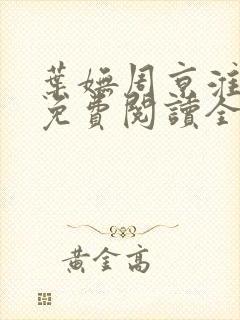 葉嫵周京淮
免費閱讀全
黃金高